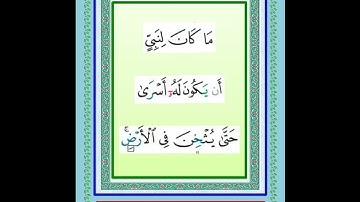 مَا كَانَ لِنَبِيٍّ
أَن يَكُونَ لَهُۥٓ أَسْرَىٰ
حَتَّىٰ يُثْخِنَ فِي ٱلْأَرْضِ ۚ